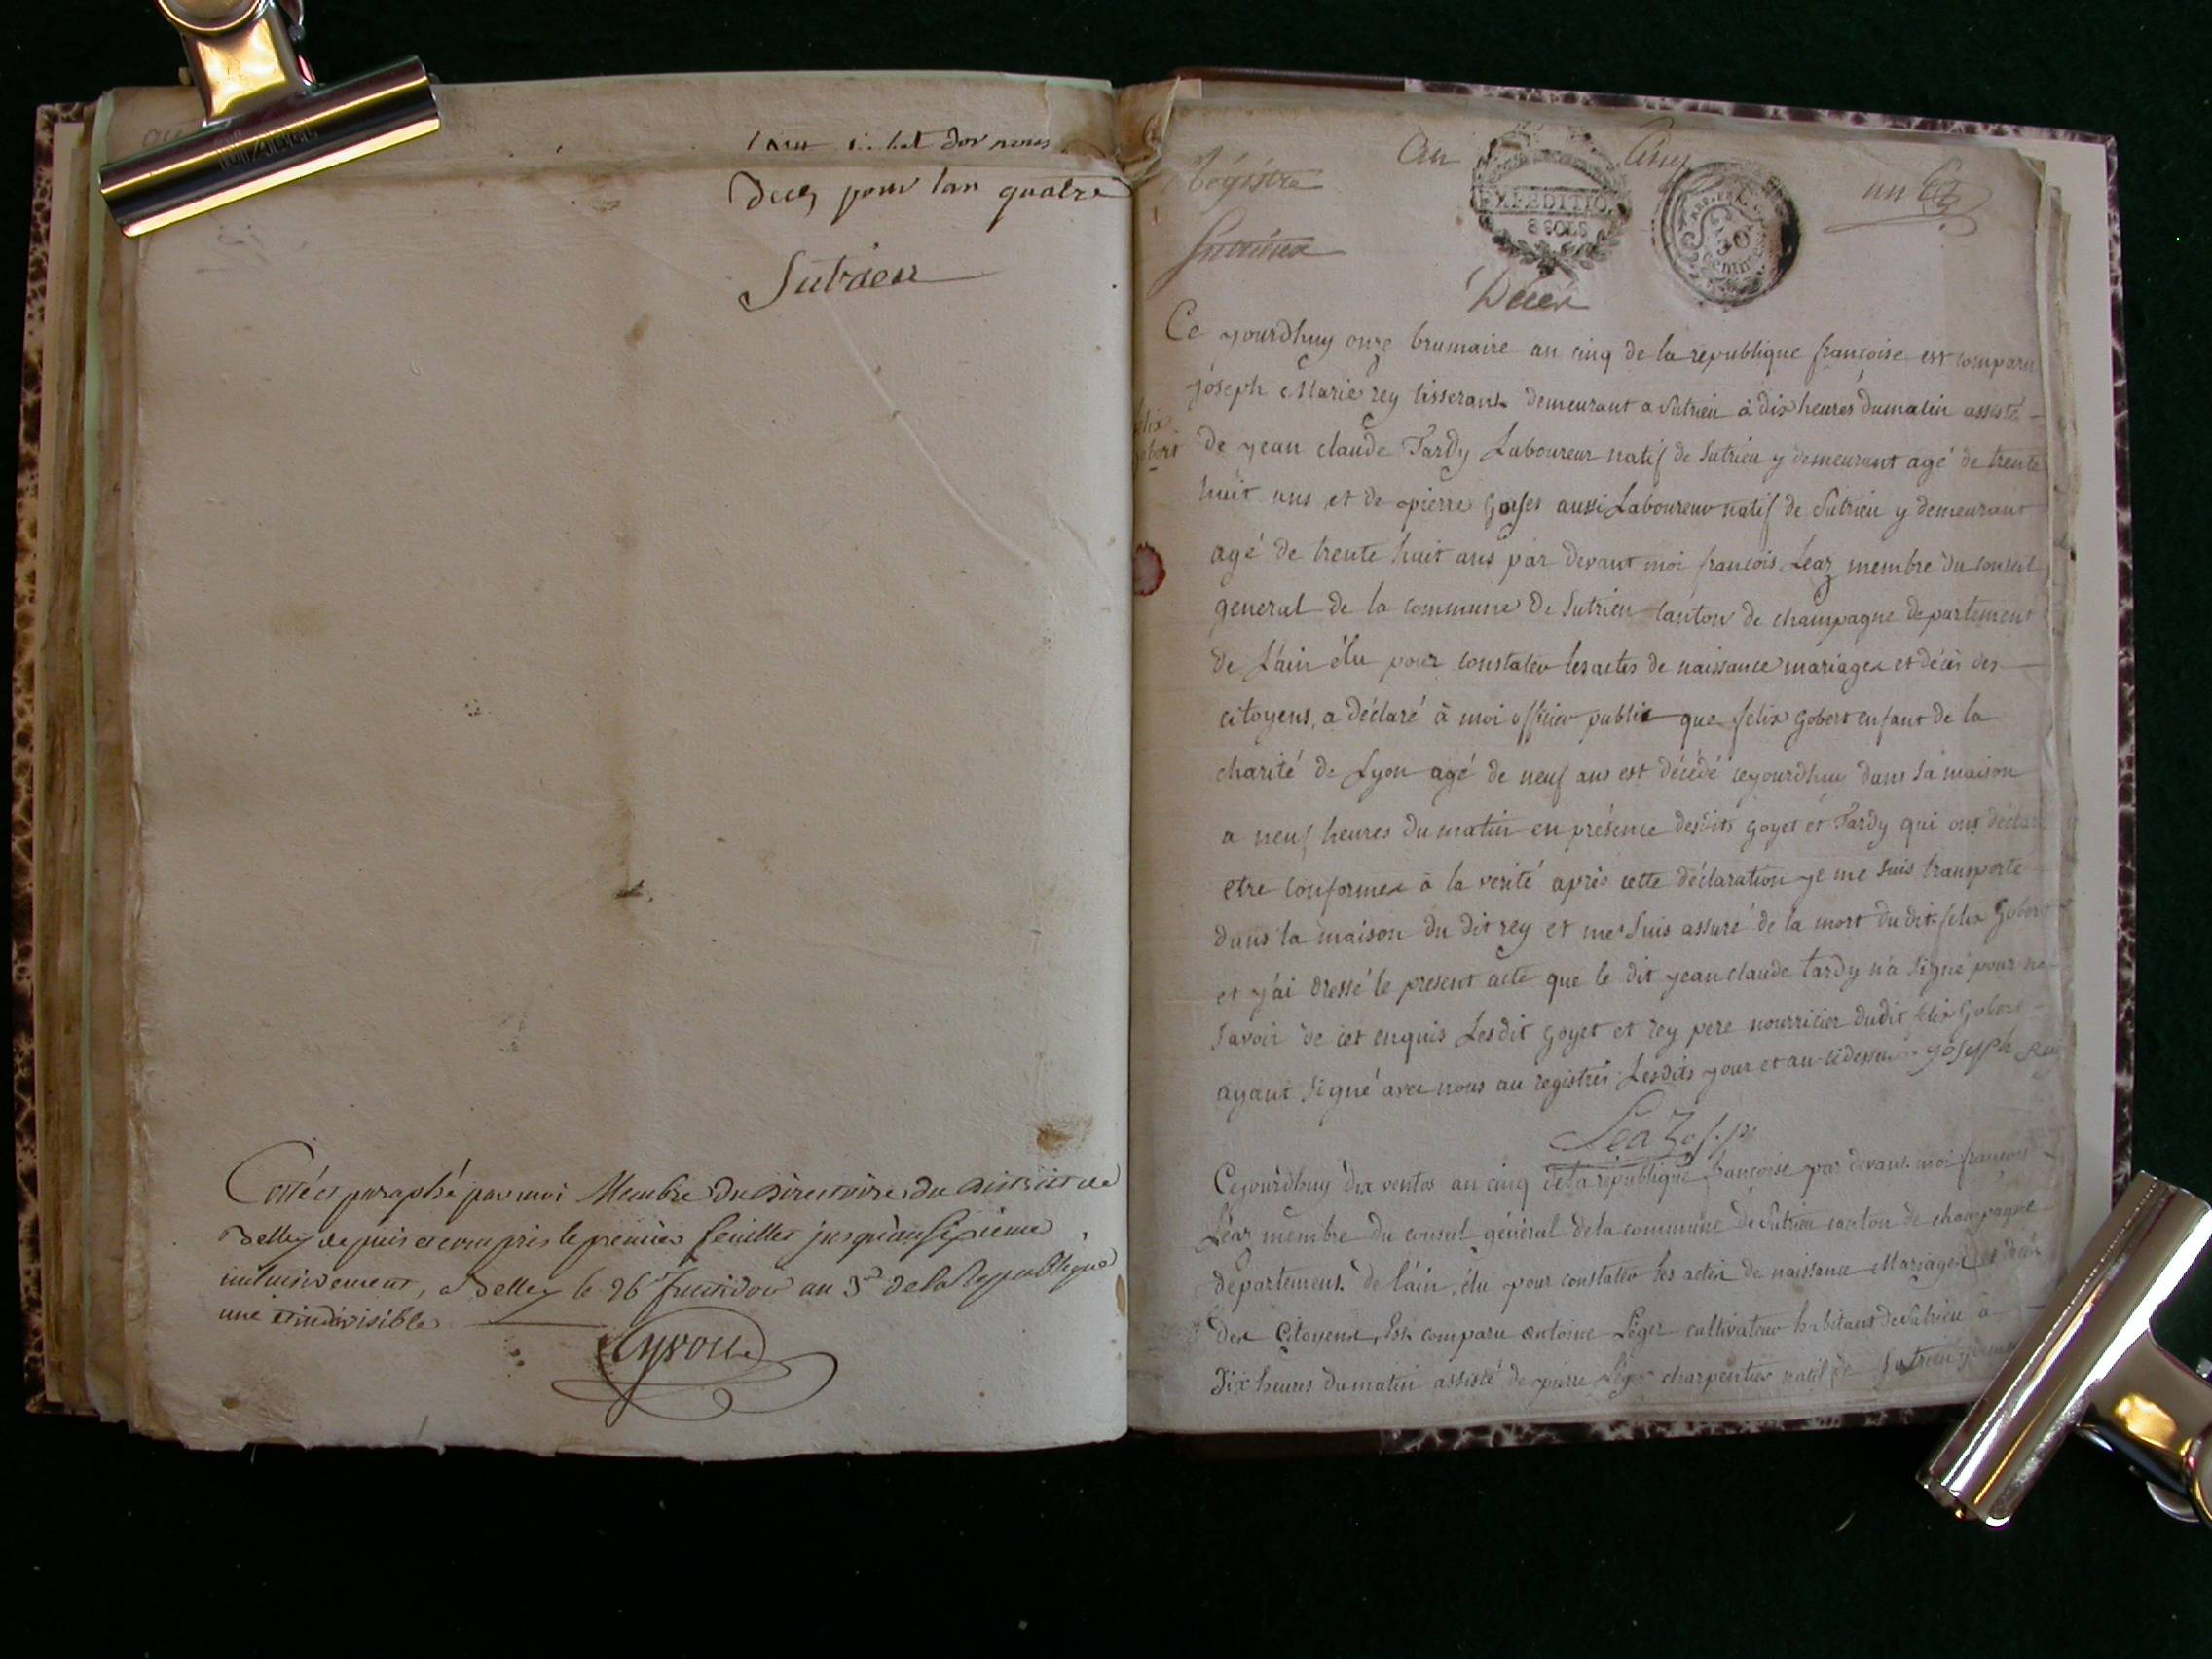 Decez pour lan quatre
Sutrieu
Cotté et paraphé par moi Membre du Directoire du District de
Belley depuis et compris le premier feuillet jusqu'au sixieme
inclusivement, a Belley le 26 fructidor an 3e de la Republique
une et indivisible
Régistre
an cinq
un
Sutrieu
EXPEDITIO.
8 SOLS
Décés
Ce yourdhuy onze brumaire an cinq de la republique françoise est comparu
joseph Marie rey tisserant demeurant a Sutrieu à dix heures du matin assisté
felix
gobert
de yean claude Tardy Laboureur natif de Sutrieu y demeurant agé de trente
huit ans et de pierre goyet aussi Laboureur natif de Sutrieu y demeurant
agé de trente huit ans par devant moi francois Leaz membre du conseil
general de la commune de Sutrieu canton de champagne departement
de L'ain élu pour constater les actes de naissance mariages et décès des
citoyens, a déclaré à moi officier public que felix gobert enfant de la
charité de Lyon agé de neuf ans est décédé ceyourdhuy dans sa maison
a neuf heures du matin en présence desdits goyet et Tardy qui ont déclaré
etre conformes à la verité après cette déclaration ye me suis transporté
dans la maison du dit rey et me suis assuré de la mort du dit felix Gobert
et y'ai dressé le present acte que le dit yean claude tardy n'a signé pour ne
savoir de cet enquis Lesdit goyet et rey pere nourricier dudit felix Gobert
ayant signé avec nous au registres Lesdits your et an cidessus yoseph Rey
Leaz of. p.
Ceyourdhuy dix ventos an cinq de la republique francoise par devant moi francois
Léaz membre du conseil général de la commune de Sutrieu canton de champagne
departement de l'ain, élu pour constater les actes de naissance Mariages et décès
des Citoyens, Est comparu antoine Léger cultivateur habitant de Sutrieu à
dix heures du matin assisté de pierre Léger charpentier natif de Sutrieu y